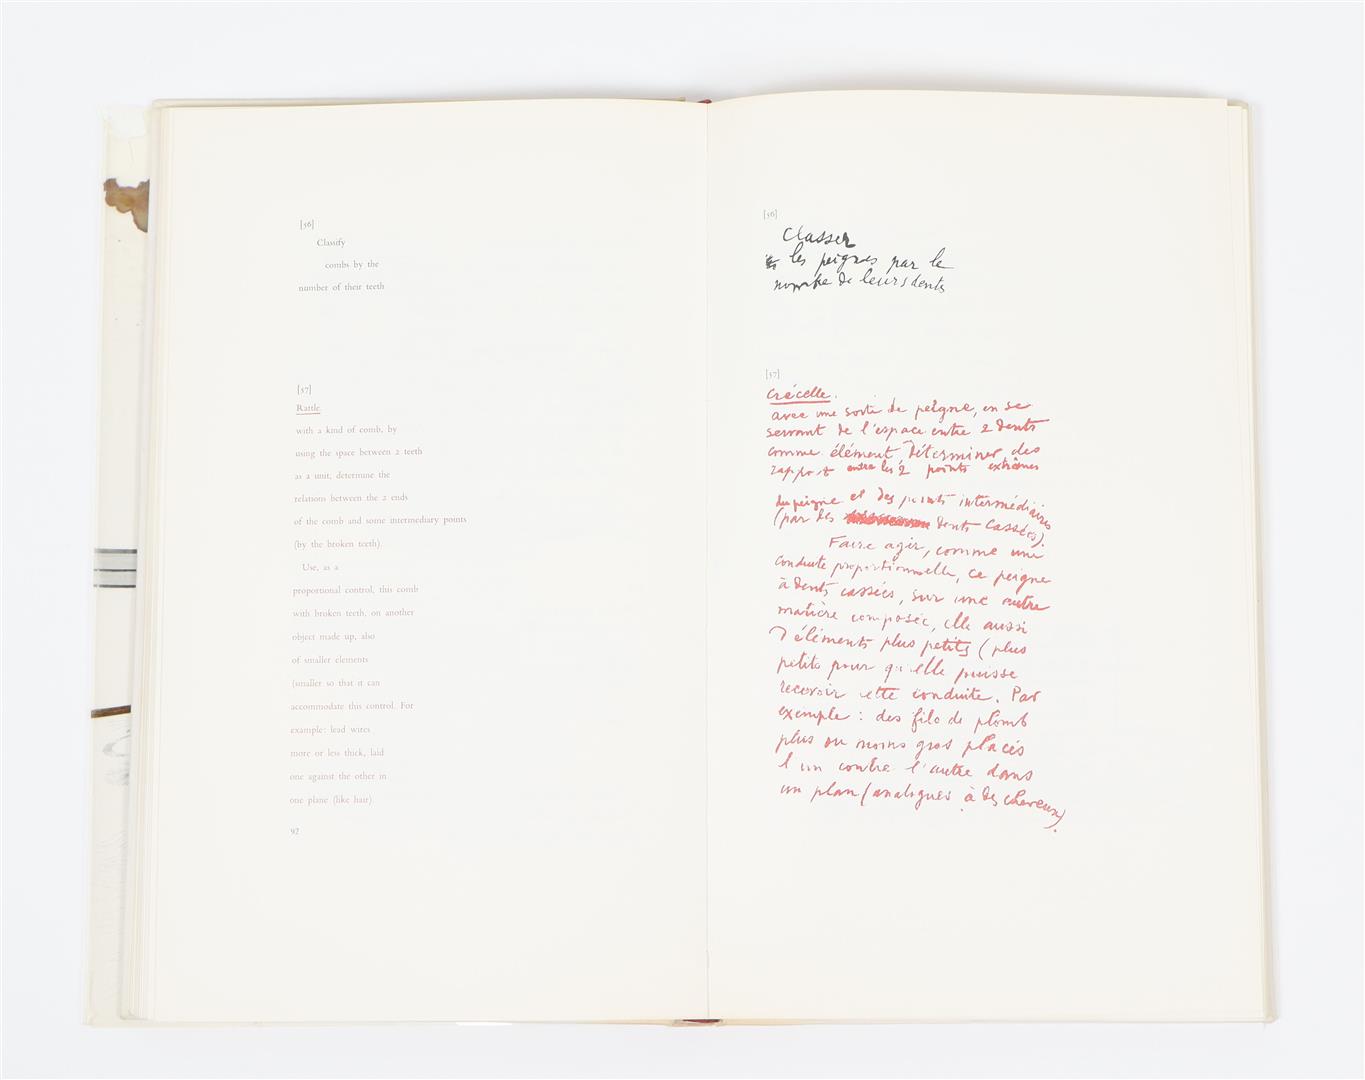 [56]
Classify
combs by the
number of their teeth
[57]
Rattle
with a kind of comb, by
using the space between 2 teeth
as a unit, determine the
relations between the 2 ends
of the comb and some intermediary points
(by the broken teeth).
Use, as a
proportional control, this comb
with broken teeth, on another
object made up, also
of smaller elements
(smaller so that it can
accommodate this control. For
example: lead wires
more or less thick, laid
one against the other in
one plane (like hair)
92
[56]
Classer
les peignes par le
nombre de leurs dents
[57]
Crécelle.
avec une sorte de peigne, en se
servant de l'espace entre 2 dents
comme élément, déterminer des
rapport entre les 2 points extrêmes
du peigne et des points intermédiaires
(par les dents cassées).
Faire agir, comme une
conduite proportionnelle, ce peigne
à dents cassées, sur une autre
matière composée, elle aussi
d'éléments plus petits (plus
petits pour qu'elle puisse
recevoir cette conduite. Par
exemple : des fils de plomb
plus ou moins gros placés
l'un contre l'autre dans
un plan (analogues à des cheveux).